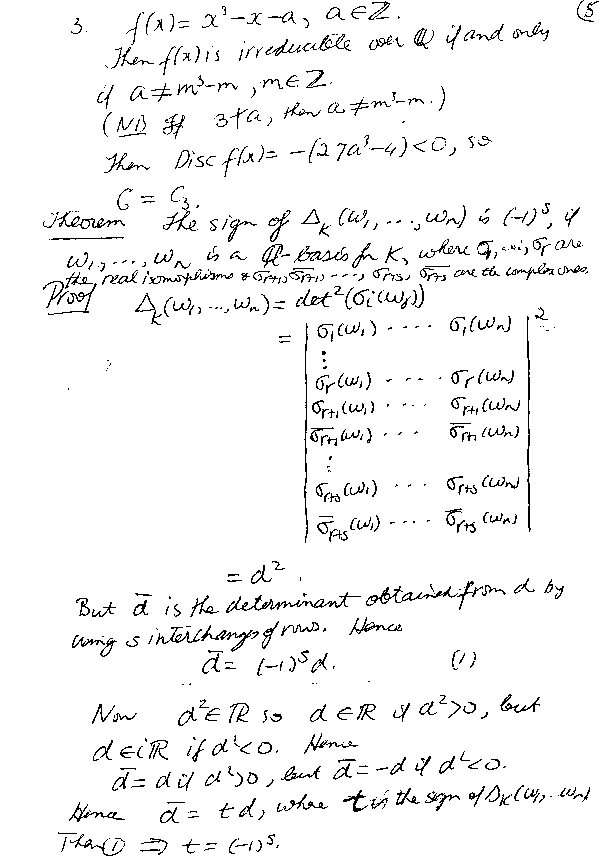 (5
3. f(x) = x³-x-a, a∈ℤ.
Then f(x) is irreducible over ℚ if and only
if a≠m³-m, m∈ℤ.
(NB If 3∤a, then a≠m³-m.)
Then Disc f(x) = -(27a³-4)<0, so
G = C₃.
Theorem The sign of Δ_K(ω₁, ..., ωₙ) is (-1)ˢ, if
ω₁, ..., ωₙ is a ℚ-basis for K, where σ₁, ..., σᵣ are
the real isomorphisms & σᵣ₊₁, σ̄ᵣ₊₁, ..., σᵣ₊ₛ, σ̄ᵣ₊ₛ are the complex ones.
Proof Δ_K(ω₁, ..., ωₙ) = det²(σᵢ(ωⱼ))
= | σ₁(ω₁) ..... σ₁(ωₙ) |²
⋮
σᵣ(ω₁) .... σᵣ(ωₙ)
σᵣ₊₁(ω₁) .... σᵣ₊₁(ωₙ)
σ̄ᵣ₊₁(ω₁) ... σ̄ᵣ₊₁(ωₙ)
⋮
σᵣ₊ₛ(ω₁) .... σᵣ₊ₛ(ωₙ)
σ̄ᵣ₊ₛ(ω₁) .... σ̄ᵣ₊ₛ(ωₙ)
= d².
But d̄ is the determinant obtained from d by
using s interchanges of rows. Hence
d̄ = (-1)ˢd. (1)
Now d²∈ℝ so d∈ℝ if d²>0, but
d∈iℝ if d²<0. Hence
d̄=d if d²>0, but d̄=-d if d²<0.
Hence d̄ = td, where t is the sign of Δ_K(ω₁, ... ωₙ)
Then ① ⇒ t = (-1)ˢ.